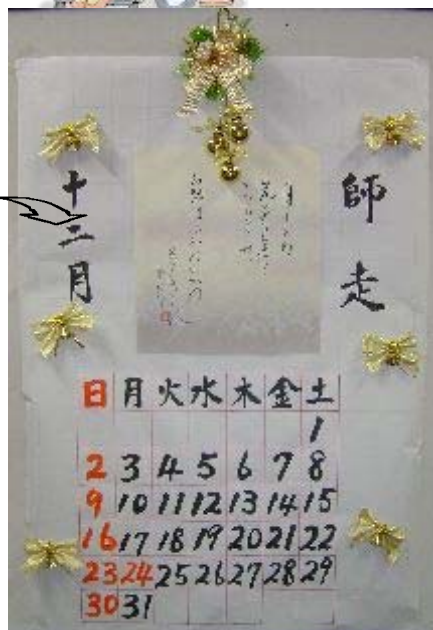 師走
十二月
日 月 火 水 木 金 土
1
2 3 4 5 6 7 8
9 10 11 12 13 14 15
16 17 18 19 20 21 22
23 24 25 26 27 28 29
30 31